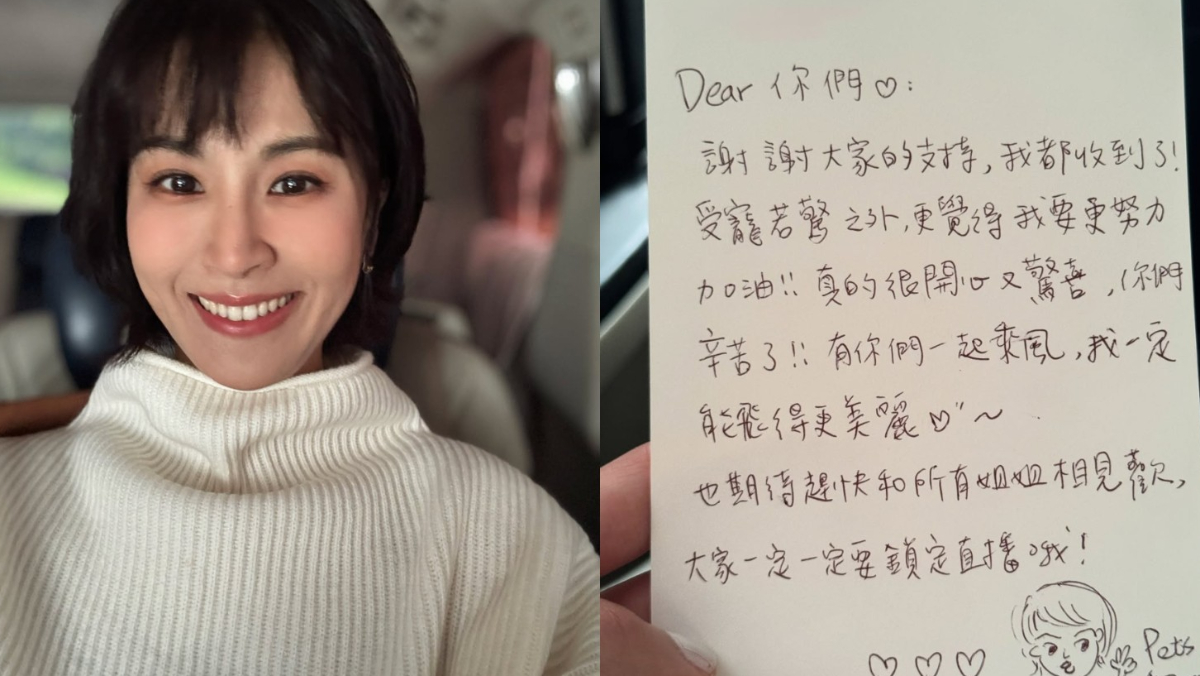 Dear 你們♡:
謝謝大家的支持,我都收到了!
受寵若驚之外,更覺得我要更努力
加油!! 真的很開心又驚喜,你們
辛苦了!! 有你們一起乘風,我一定
能飛得更美麗♡"~
也期待趕快和所有姐姐相見歡,
大家一定一定要鎖定直播哦!
♡♡♡ Pets